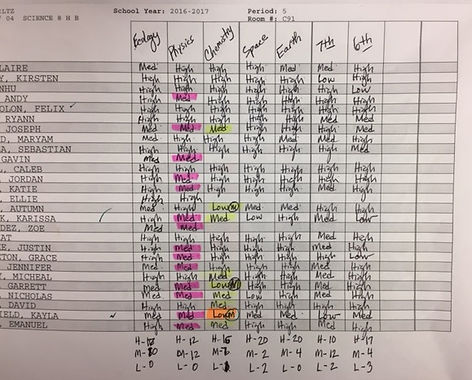 LTZ School Year: 2016-2017 Period: 5
04 SCIENCE 8 H B Room #: C91
Ecology Physics Chemistry Space Earth 7th 6th
LAIRE Med High High High Med Med High
Y, KIRSTEN High High High High High Low High
NHU High High High High High High Low
ANDY High Med High High High High High
OLON, FELIX High High High High High High High
RYANN High High High High High Med Med
JOSEPH Med Med Med High High High Med
D, MARYAM Med High High High High High High
A, SEBASTIAN High High High High High High High
GAVIN Med Med
, CALEB High High High High High High High
JORDAN High Med High High High High High
KATIE High Med High High High Med High
ELLIE High High
, AUTUMN Med High Low Med Med High High
K, KARISSA High Med Med Low High Med Low
DEZ, ZOE Med Med
AT High High High High High High High
E, JUSTIN High Med High High High Med High
TON, GRACE High Med High High High High Low
JENNIFER Med Med High High High High High
, MICHEAL High High Med High High High Med
GARRETT Med Med Low High High High High
NICHOLAS Med Med Med Low High Med High
, DAVID High High Med High High High High
IELD, KAYLA Med Med Low High Med Low Med
, EMANUEL High Med Med High High High High
H-12 H-20 H-20 H-10 H-17
M-12 M-2 M-4 M-12 M-4
L-0 L-0 L-2 L-0 L-2 L-3